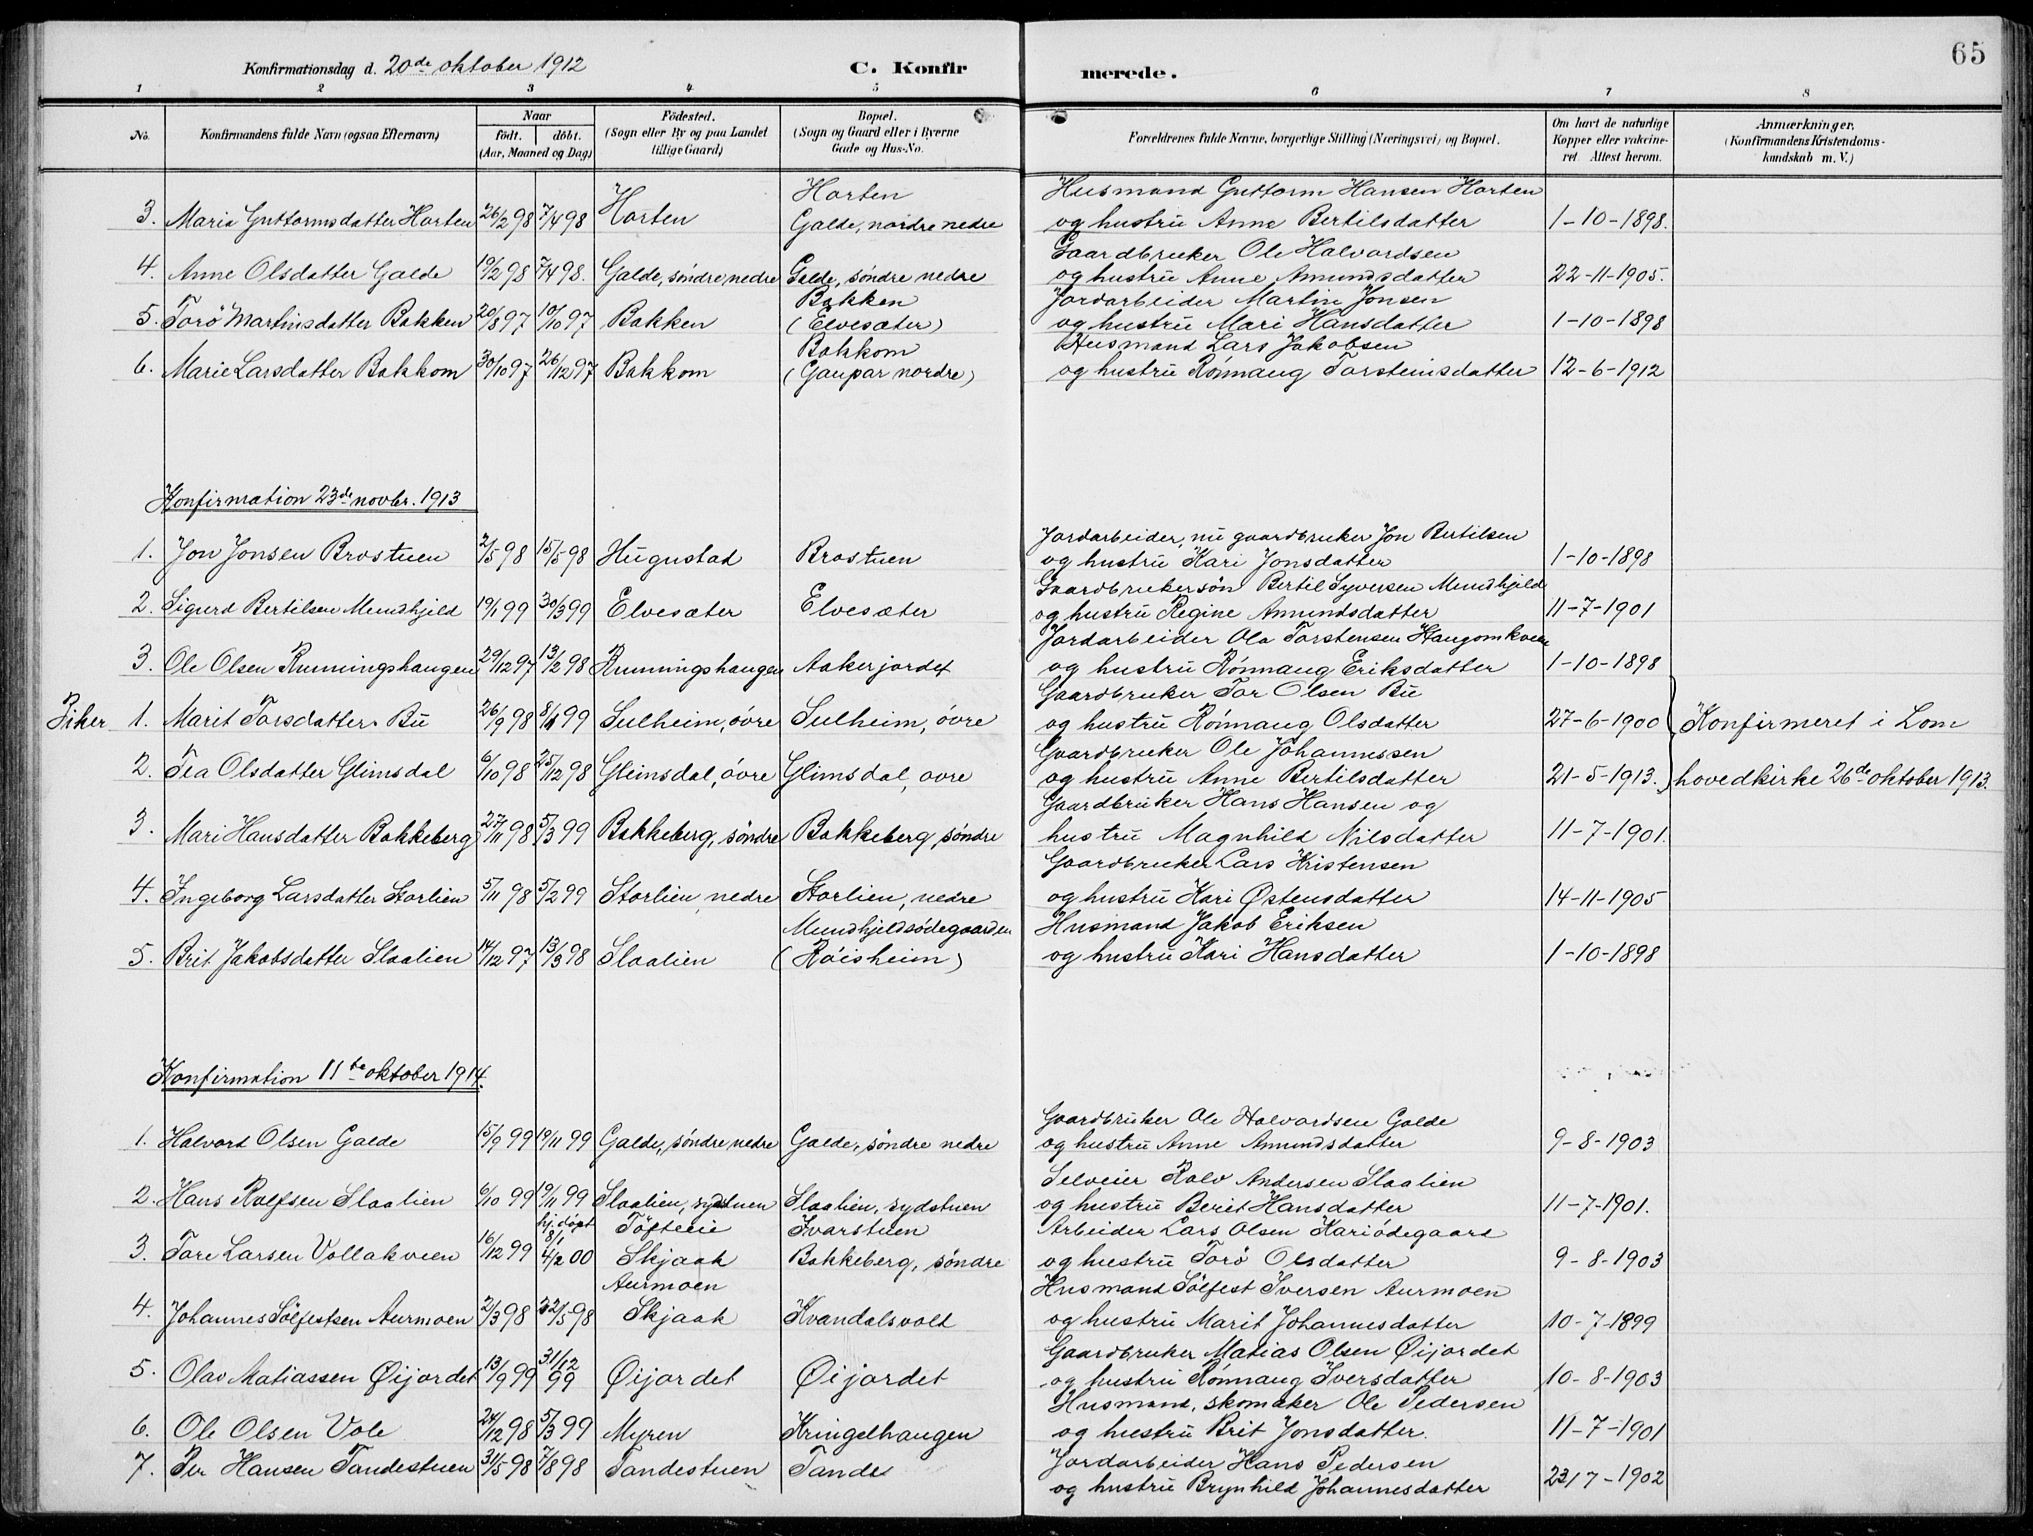 65
Konfirmationsdag d. 20de oktober 1912
C. Konfirmerede.
1 2 3 4 5 6 7 8
No.
Konfirmandens fulde Navn (ogsaa Efternavn)
Naar
født. døbt.
(Aar, Maaned og Dag)
Fødested.
(Sogn eller By og paa Landet
tillige Gaard)
Bopæl.
(Sogn og Gaard eller i Byerne
Gade og Hus-No.
Forældrenes fulde Navne, borgerlige Stilling (Næringsvei) og Bopæl.
Om havt de naturlige
Kopper eller vakcine-
ret. Attest herom.
Anmærkninger.
(Konfirmandens Kristendoms-
kundskab m. V.)
Horten Husmand Guttorm Hansen Horten
3. Maria Guttormsdatter Horten 26/2 98 7/4 98 Horten Galde, nordre nedre og hustru Anne Bertilsdatter 1-10-1898.
Gaardbruker Ole Halvardsen
4. Anne Olsdatter Galde 19/2 98 7/4 98. Galde, søndre nedre Galde, søndre nedre og hustru Anne Amundsdatter 22-11-1905.
Bakken Jordarbeider Martin Jonsen
5. Torø Martinsdatter Bakken 20/8 97 10/10 97 Bakken (Elvesæter) og hustru Mari Hansdatter 1-10-1898
Bakkom Husmand Lars Jakobsen
6. Marie Larsdatter Bakkom 30/10 97 26/12 97 Bakkom (Gaupar nordre) og hustru Rønnaug Torsteinsdatter 12-6-1912
Konfirmation 23de novbr. 1913
Jordarbeider, nu gaardbruker Jon Bertilsen
1. Jon Jonsen Brostuen 2/5 98 15/5 98 Hugustad Brostuen og hustru Kari Jonsdatter 1-10-1898
Gaardbrukersøn Bertil Syversen Mundhjeld
2. Sigurd Bertilsen Mundhjeld 19/1 99 30/3 99 Elvesæter Elvesæter og hustru Regine Amundsdatter 11-7-1901
Jordarbeider Ola Torstensen Haugomkveen
3. Ole Olsen Runningshaugen 29/12 97 13/2 98 Runningshaugen Aakerjordet og hustru Rønnaug Eriksdatter 1-10-1898
Gaardbruker Tor Olsen Bu
Piker 1. Marit Torsdatter Bu 26/9 98 8/1 99 Sulheim, øvre Sulheim, øvre og hustru Rønnaug Olsdatter 27-6-1900 Konfirmeret i Lom
Gaardbruker Ole Johannessen
2. Tea Olsdatter Glimsdal 6/10 98 25/12 98 Glimsdal, øvre Glimsdal, øvre og hustru Anne Bertilsdatter 21-5-1913. hovedkirke 26de oktober 1913.
Gaardbruker Hans Hansen og
3. Mari Hansdatter Bakkeberg 27/11 98 5/3 99 Bakkeberg, søndre Bakkeberg, søndre hustru Magnhild Nilsdatter 11-7-1901.
Gaardbruker Lars Kristensen
4. Ingeborg Larsdatter Storlien 5/11 98 5/2 99 Storlien, nedre Storlien, nedre og hustru Kari Østensdatter 14-11-1905
Mundhjeldsødegaarden Husmand Jakob Eriksen
5. Brit Jakobsdatter Slaalien 14/12 97 13/3 98 Slaalien (Røisheim) og hustru Kari Hansdatter 1-10-1898
Konfirmation 11te oktober 1914.
Gaardbruker Ole Halvardsen Galde
1. Halvard Olsen Galde 15/9 99 19/11 99 Galde, søndre nedre Galde, søndre nedre og hustru Anne Amundsdatter 9-8-1903
Selveier Rolv Andersen Slaalien
2. Hans Rolfsen Slaalien 6/10 99 19/11 99 Slaalien, sydstuen Slaalien, sydstuen og hustru Berit Hansdatter 11-7-1901.
hj. døpt 8/1 Tøfteeie Ivarstuen Arbeider Lars Olsen Kariødegaard
3. Tore Larsen Vollakveen 16/12 99 4/2 00 Skjaak Bakkeberg, søndre og hustru Torø Olsdatter 9-8-1903
Aurmoen Husmand Sølfest Iversen Aurmoen
4. Johannes Sølfestsen Aurmoen 2/3 98 22/5 98 Skjaak Kvandalsvolt og hustru Marit Johannesdatter 10-7-1899
Gaardbruker Matias Olsen Øijordet
5. Olav Matiassen Øijordet 13/9 99 31/12 99 Øijordet Øijordet og hustru Rønnaug Iversdatter 10-8-1903
Husmand, skomaker Ole Pedersen
6. Ole Olsen Vole 24/12 98 5/3 99 Myren Kringelhaugen og hustru Brit Jonsdatter. 11-7-1901
Jordarbeider Hans Pedersen
7. Per Hansen Tandestuen 31/5 98 7/8 98 Tandestuen Tande og hustru Brynhild Johannesdatter 23/7-1902